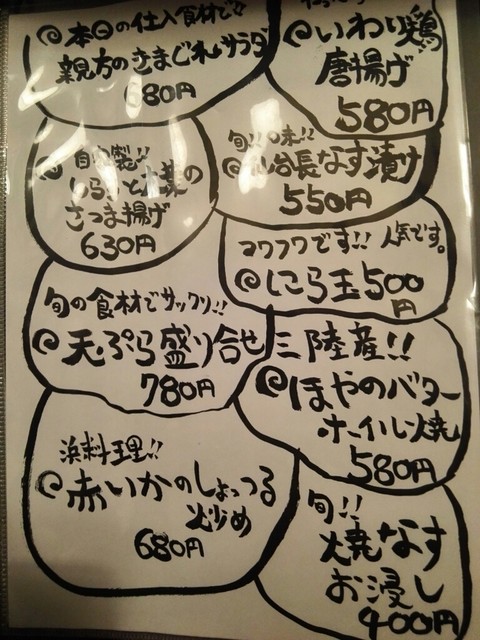 本日の仕入食材で!!
親方のきまぐれサラダ
680円
いわい鶏
唐揚げ
580円
自家製!!
しらすと大葉の
さつま揚げ
630円
旬!!の味!!
仙台長なす漬け
550円
フワフワです!! 人気です。
にら玉500
円
旬の食材でサックリ!!
天ぷら盛り合せ
780円
三陸産!!
ほやのバター
ホイル焼
580円
浜料理!!
赤いかのしょっつる
炒め
680円
旬!!
焼なす
お浸し
400円